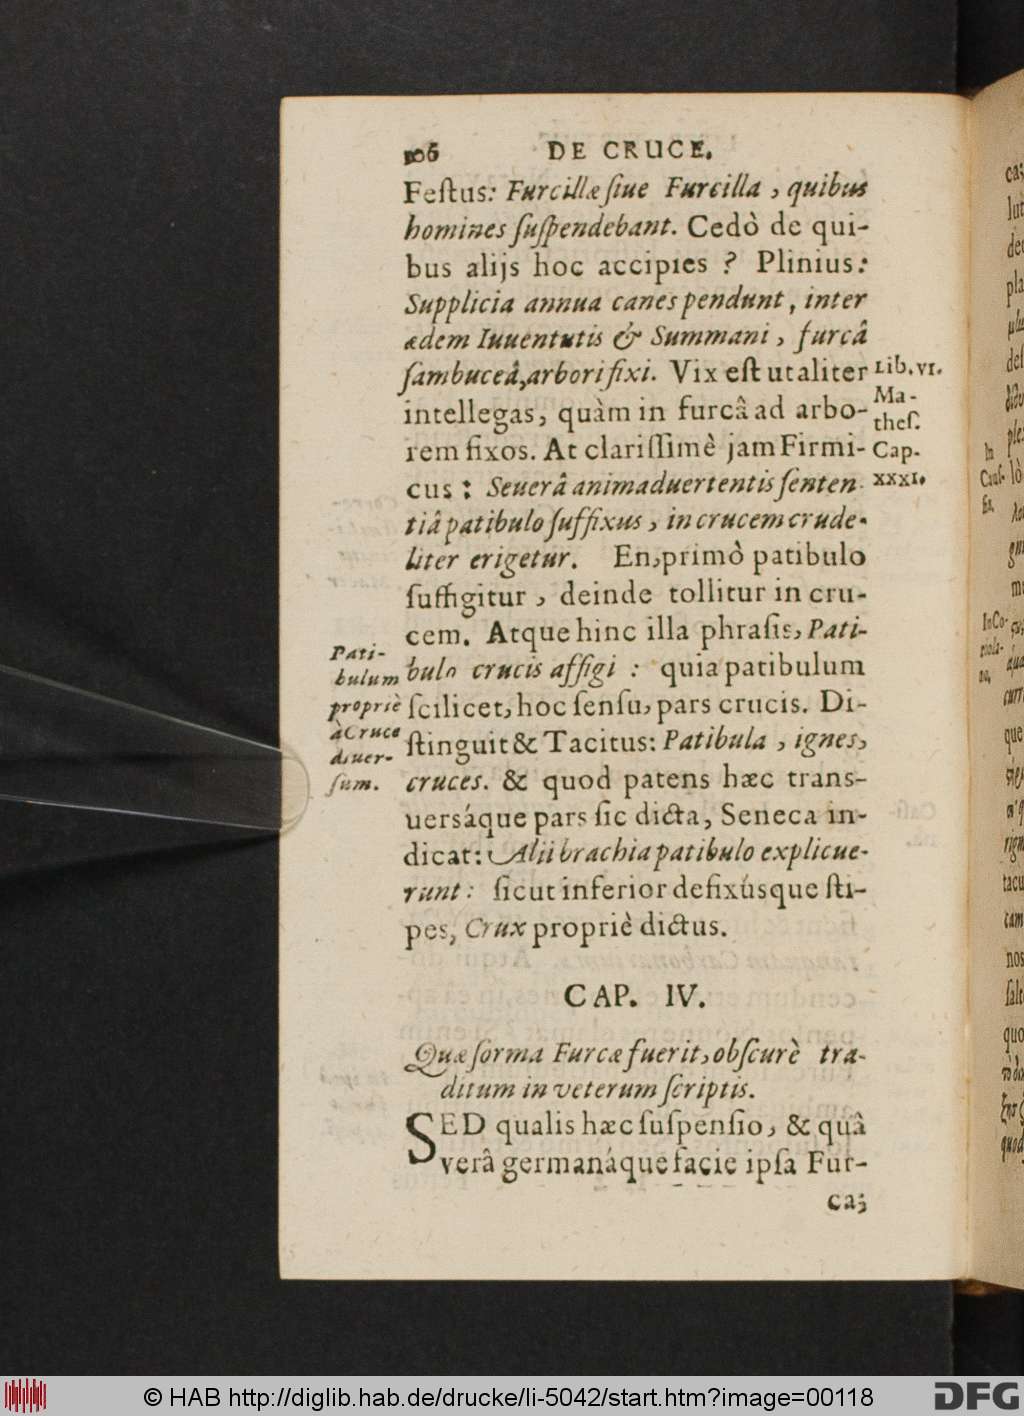 106 DE CRUCE.
Feſtus: Furcillæ ſiue Furcilla, quibus
homines ſuſpendebant. Cedò de qui-
bus alijs hoc accipies? Plinius:
Supplicia annua canes pendunt, inter
ædem Iuuentutis & Summani, furcâ
ſambuceâ, arbori fixi. Vix eſt ut aliter
intellegas, quàm in furcâ ad arbo-
rem fixos. At clariſſimè jam Firmi-
cus: Seuerâ animaduertentis ſenten-
tiâ patibulo ſuffixus, in crucem crude-
liter erigetur. En, primò patibulo
ſuffigitur, deinde tollitur in cru-
cem. Atque hinc illa phraſis, Pati-
bulo crucis affigi: quia patibulum
ſcilicet, hoc ſenſu, pars crucis. Di-
ſtinguit & Tacitus: Patibula, ignes,
cruces. & quod patens hæc trans-
uersáque pars ſic dicta, Seneca in-
dicat: Alii brachia patibulo explicue-
runt: ſicut inferior defixúsque ſti-
pes, Crux propriè dictus.
Lib. VI.
Ma-
theſ.
Cap.
XXXI.
Pati-
bulum
propriè
à Cruce
diuer-
ſum.
CAP. IV.
Quæ forma Furcæ fuerit, obſcurè tra-
ditum in veterum ſcriptis.
SED qualis hæc ſuſpenſio, & quâ
verâ germanáque facie ipſa Fur-
ca;
In
Cauſ-
In Co-
© HAB http://diglib.hab.de/drucke/li-5042/start.htm?image=00118
DFG